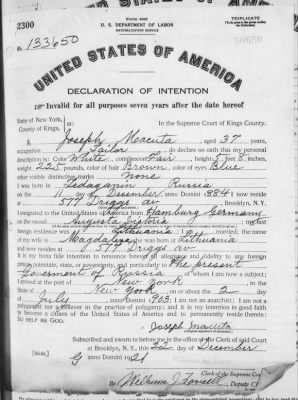 Form 2202
2300
U. S. DEPARTMENT OF LABOR
NATURALIZATION SERVICE
TRIPLICATE
No. 133650
UNITED STATES OF AMERICA
DECLARATION OF INTENTION
Invalid for all purposes seven years after the date hereof
State of New York,
County of Kings. ss:
In the Supreme Court of Kings County.
I, Joseph Macuta, aged 37 years,
occupation Tailor, do declare on oath that my personal
description is: Color White, complexion Fair, height 5 feet 8 inches,
weight 225 pounds, color of hair Brown, color of eyes Blue
other visible distinctive marks None
I was born in Russia
on the 11 day of December, anno Domini 1884; I now reside
at 577 Driggs av, Brooklyn, N. Y.
I emigrated to the United States of America from Hamburg Germany
on the vessel Augusta Victoria; my last
foreign residence was Lithuania; I am married; the name
of my wife is Magdalena; she was born at Lithuania
and now resides at 577 Driggs av
It is my bona fide intention to renounce forever all allegiance and fidelity to any foreign
prince, potentate, state, or sovereignty, and particularly to The present
Government of Russia, of whom I am now a subject;
I arrived at the port of New York, in the
State of New York, on or about the 2 day
of July, anno Domini 1903; I am not an anarchist; I am not a
polygamist nor a believer in the practice of polygamy; and it is my intention in good faith
to become a citizen of the United States of America and to permanently reside therein:
SO HELP ME GOD.
Joseph Macuta
Subscribed and sworn to before me in the office of the Clerk of said Court
at Brooklyn, N. Y., this 22 day of December
[SEAL]
anno Domini 1921
Clerk of the Supreme Court
By William J.